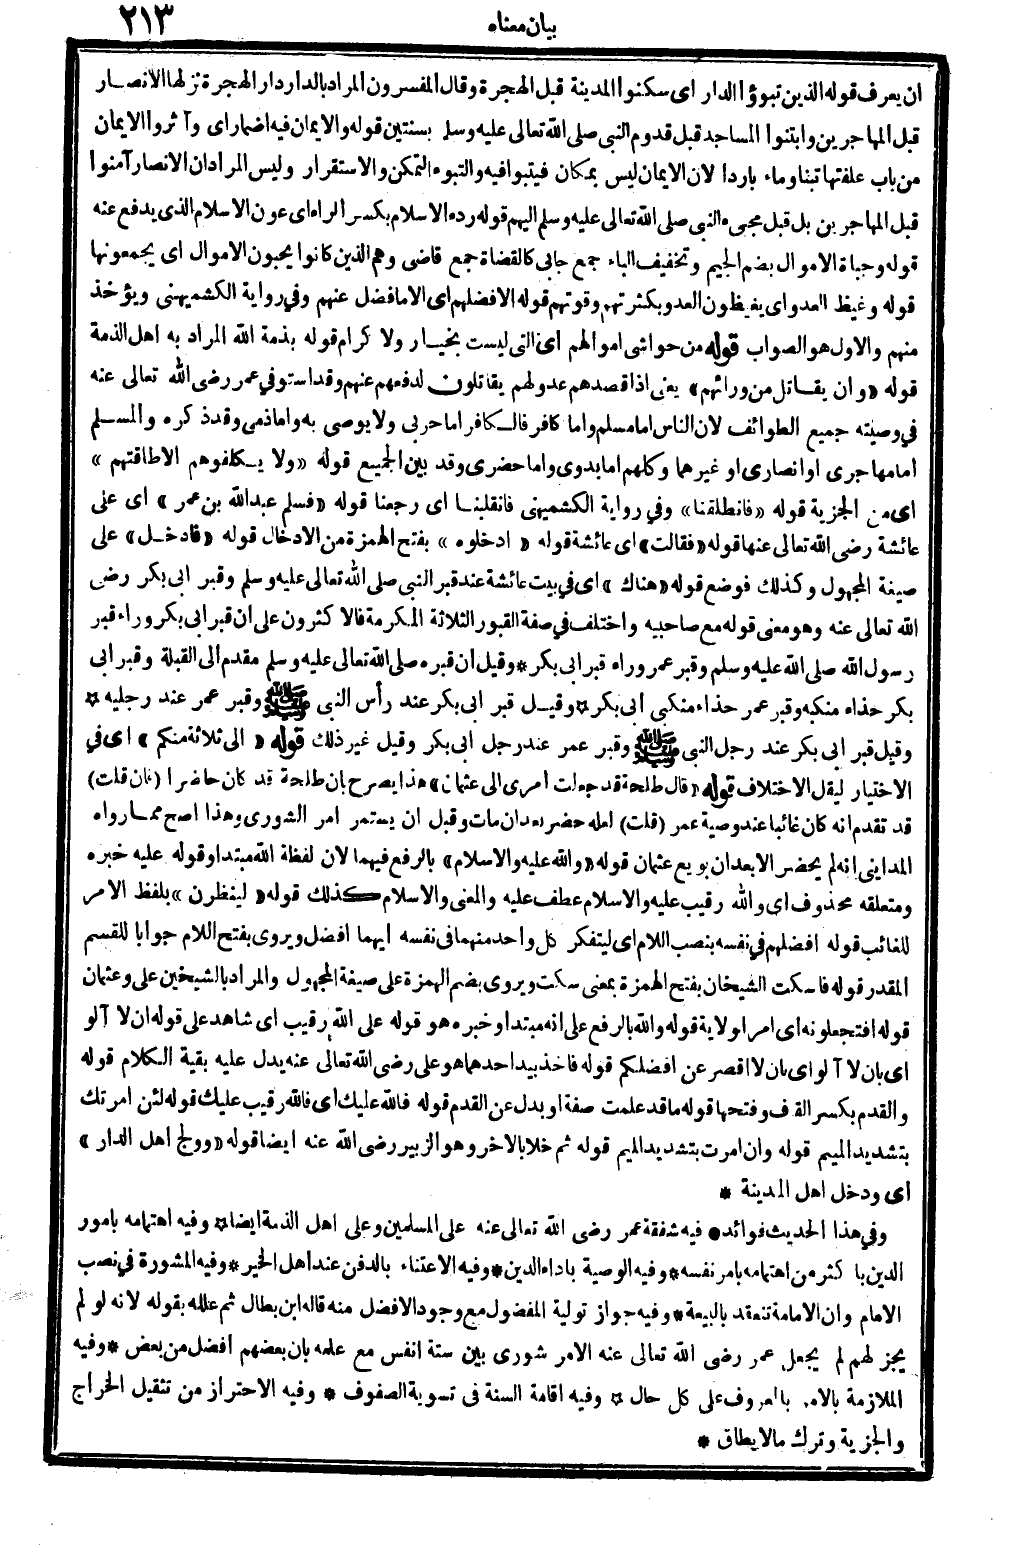 بيان معناه ٢١٣
ان يعرف قوله الذين تبوؤا الدار اى سكنوا المدينة قبل الهجرة وقال المفسرون المراد بالدار دار الهجرة نزلها الانصار
قبل المهاجرين وابتنوا المساجد قبل قدوم النبى صلى الله تعالى عليه وسلم بسنتين قوله والايمان فيه اضمار اى وآثروا الايمان
من باب علفتها تبنا وماء باردا لان الايمان ليس بمكان فيتبوا فيه والتبوء التمكن والاستقرار وليس المراد ان الانصار آمنوا
قبل المهاجرين بل قبل مجىء النبى صلى الله تعالى عليه وسلم اليهم قوله ردء الاسلام بكسر الراء اى عون الاسلام الذى يدفع عنه
قوله وجباة الاموال بضم الجيم وتخفيف الباء جمع جابى كالقضاة جمع قاضى وهم الذين كانوا يجبون الاموال اى يجمعونها
قوله وغيظ العدو اى يغيظون العدو بكثرتهم وقوتهم قوله الافضلهم اى الا مافضل عنهم وفى رواية الكشميهنى ويؤخذ
منهم والاول هو الصواب قوله من حواشى اموالهم اى التى ليست بخيار ولا كرام قوله بذمة الله المراد به اهل الذمة
قوله «وان يقاتل من ورائهم» يعنى اذا قصدهم عدو لهم يقاتلون لدفعهم عنهم وقد استوفى عمر رضى الله تعالى عنه
فى وصيته جميع الطوائف لان الناس اما مسلم واما كافر فالكافر اما حربى ولا يوصى به واما ذمى وقد ذكره والمسلم
اما مهاجرى او انصارى او غيرهما وكلهم اما بدوى واما حضرى وقد بين الجميع قوله «ولا يكلفوهم الاطاقتهم»
اى من الجزية قوله «فانطلقنا» وفى رواية الكشميهنى فانقلبنا اى رجعنا قوله «فسلم عبدالله بن عمر» اى على
عائشة رضى الله تعالى عنها قوله «فقالت» اى عائشة قوله «ادخلوه» بفتح الهمزة من الادخال قوله «فادخل» على
صيغة المجهول وكذلك فوضع قوله «هناك» اى فى بيت عائشة عند قبر النبى صلى الله تعالى عليه وسلم وقبر ابى بكر رضى
الله تعالى عنه وهو معنى قوله مع صاحبيه واختلف فى صفة القبور الثلاثة المكرمة فالاكثرون على ان قبر ابى بكر وراء قبر
رسول الله صلى الله عليه وسلم وقبر عمر وراء قبر ابى بكر * وقيل ان قبره صلى الله تعالى عليه وسلم مقدم الى القبلة وقبر ابى
بكر حذاء منكبه وقبر عمر حذاء منكبى ابى بكر * وقيل قبر ابى بكر عند رأس النبى ﷺ وقبر عمر عند رجليه *
وقيل قبر ابى بكر عند رجل النبى ﷺ وقبر عمر عند رجل ابى بكر وقيل غير ذلك قوله «الى ثلاثة منكم» اى فى
الاختيار ليقل الاختلاف قوله «قال طلحة قد جعلت امرى الى عثمان» هذا يصرح بان طلحة قد كان حاضرا (فان قلت)
قد تقدم انه كان غائبا عند وصية عمر (قلت) لعله حضر بعد ان مات وقبل ان يستمر امر الشورى وهذا اصح مما رواه
المداينى انه لم يحضر الا بعد ان بويع عثمان قوله «والله عليه والاسلام» بالرفع فيهما لان لفظة الله مبتدا وقوله عليه خبره
ومتعلقه محذوف اى والله رقيب عليه والاسلام عطف عليه والمعنى والاسلام كذلك قوله «لينظرن» بلفظ الامر
للغائب قوله افضلهم فى نفسه بنصب اللام اى ليتفكر كل واحد منهما فى نفسه ايهما افضل ويروى بفتح اللام جوابا للقسم
المقدر قوله فاسكت الشيخان بفتح الهمزة بمعنى سكت ويروى بضم الهمزة على صيغة المجهول والمراد بالشيخين على وعثمان
قوله افتجعلونه اى امر الولاية قوله والله بالرفع على انه مبتدا وخبره هو قوله على الله رقيب اى شاهد على قوله ان لا آلو
اى بان لا آلو اى بان لا اقصر عن افضلكم قوله فاخذ بيد احدهما هو على رضى الله تعالى عنه يدل عليه بقية الكلام قوله
والقدم بكسر القاف وفتحها قوله ما قد علمت صفة او بدل عن القدم قوله فالله عليك اى فالله رقيب عليك قوله لئن امرتك
بتشديد الميم قوله وان امرت بتشديد الميم قوله ثم خلا بالاخر وهو الزبير رضى الله عنه ايضا قوله «وولج اهل الدار»
اى ودخل اهل المدينة *
وفى هذا الحديث فوائد * فيه شفقة عمر رضى الله تعالى عنه على المسلمين وعلى اهل الذمة ايضا * وفيه اهتمامه بامور
الدين باكثر من اهتمامه بامر نفسه * وفيه الوصية باداء الدين * وفيه الاعتناء بالدفن عند اهل الخير * وفيه المشورة فى نصب
الامام وان الامامة تنعقد بالبيعة * وفيه جواز تولية المفضول مع وجود الافضل منه قاله ابن بطال ثم علله بقوله لانه لو لم
يجز لهم لم يجعل عمر رضى الله تعالى عنه الامر شورى بين ستة انفس مع علمه بان بعضهم افضل من بعض * وفيه
الملازمة بالامر بالمعروف على كل حال * وفيه اقامة السنة فى تسوية الصفوف * وفيه الاحتراز من تثقيل الخراج
والجزية وترك مالايطاق *